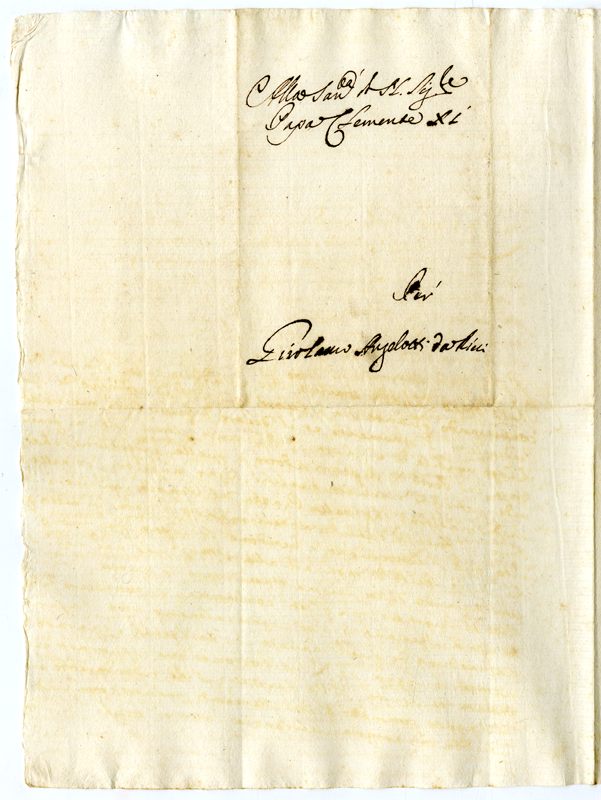 Alla San.tà di N. Sig.re
Papa Clemente XI
Per
Girolamo Angelotti da